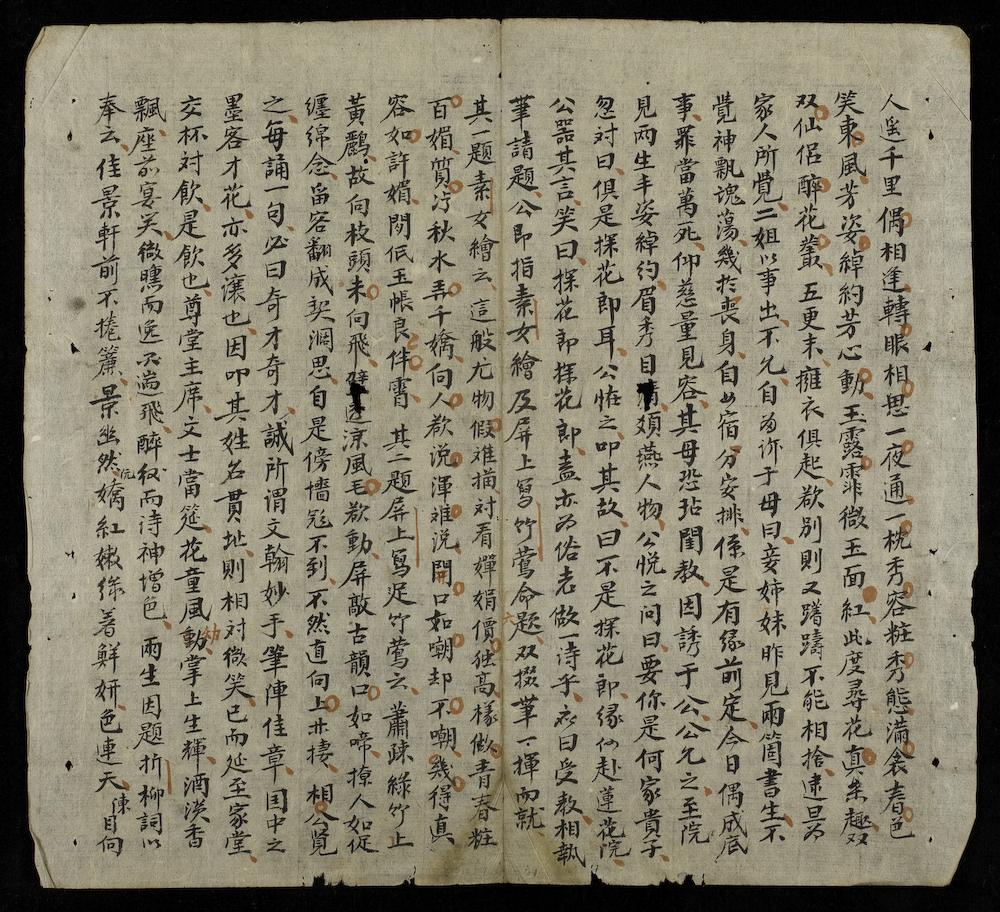 人遥千里偶相逢轉眼相思一夜通一枕秀容粧秀態滿衾春色
笑東風芳姿綽約芳心動玉露霏微玉面紅此度尋花真樂趣双
双仙侣醉花叢五更末擁衣俱起欲別則又躊躇不能相捨逮旦为
家人所覺二姐以事出不允自为诈于母曰妾姉妹昨見兩箇書生不
覺神飄魂蕩幾於喪身自出宿分安排係是有縁前定今日偶成底
事罪當萬死仰慈量見容其母恐玷閨教因誘于公公允之至院
見兩生丰姿綽約眉秀目清頗燕人物公悦之问曰要你是何家貴子
忽対曰俱是探花郎耳公怪之叩其故曰不是探花郎縁何赴蓮花院
公器其言笑曰探花郎探花郎盍亦为俗老做一诗乎衣曰受教相執
筆請題公即指素女繪及屏上寫竹鶯命題双掇筆一揮而就
其一題素女繪云這般尤物假难描対看嬋娟價独高樣做青春粧
百媚質泞秋水弄千嬌向人欲说渾难说開口如嘲却不嘲幾得真
容如許媚閑低玉帳良伴霄其二題屏上寫足竹鶯云蕭疎綠竹上
黃鸝故向枝頭未向飛壁邊凉風毛欲動屏敲古韻口如啼撩人如促
纏綿念畄客翻成契濶思自是傍墻彪不到不然直向上林棲相公覧
之每誦一句必曰奇才奇才誠所谓文翰妙手筆陣佳章国中之
墨客才花亦多讓也因叩其姓名貫址則相対微笑已而延至家堂
交杯対飲是飲也尊堂主席文士當筵花童風動掌上生輝酒淡香
飄座前宴笑微曛而逸不湍飛醉叙而诗神增色兩生因题折柳詞以
奉云佳景軒前不捲簾景幽然嬌紅嫩綠著鮮妍色連天陳目向